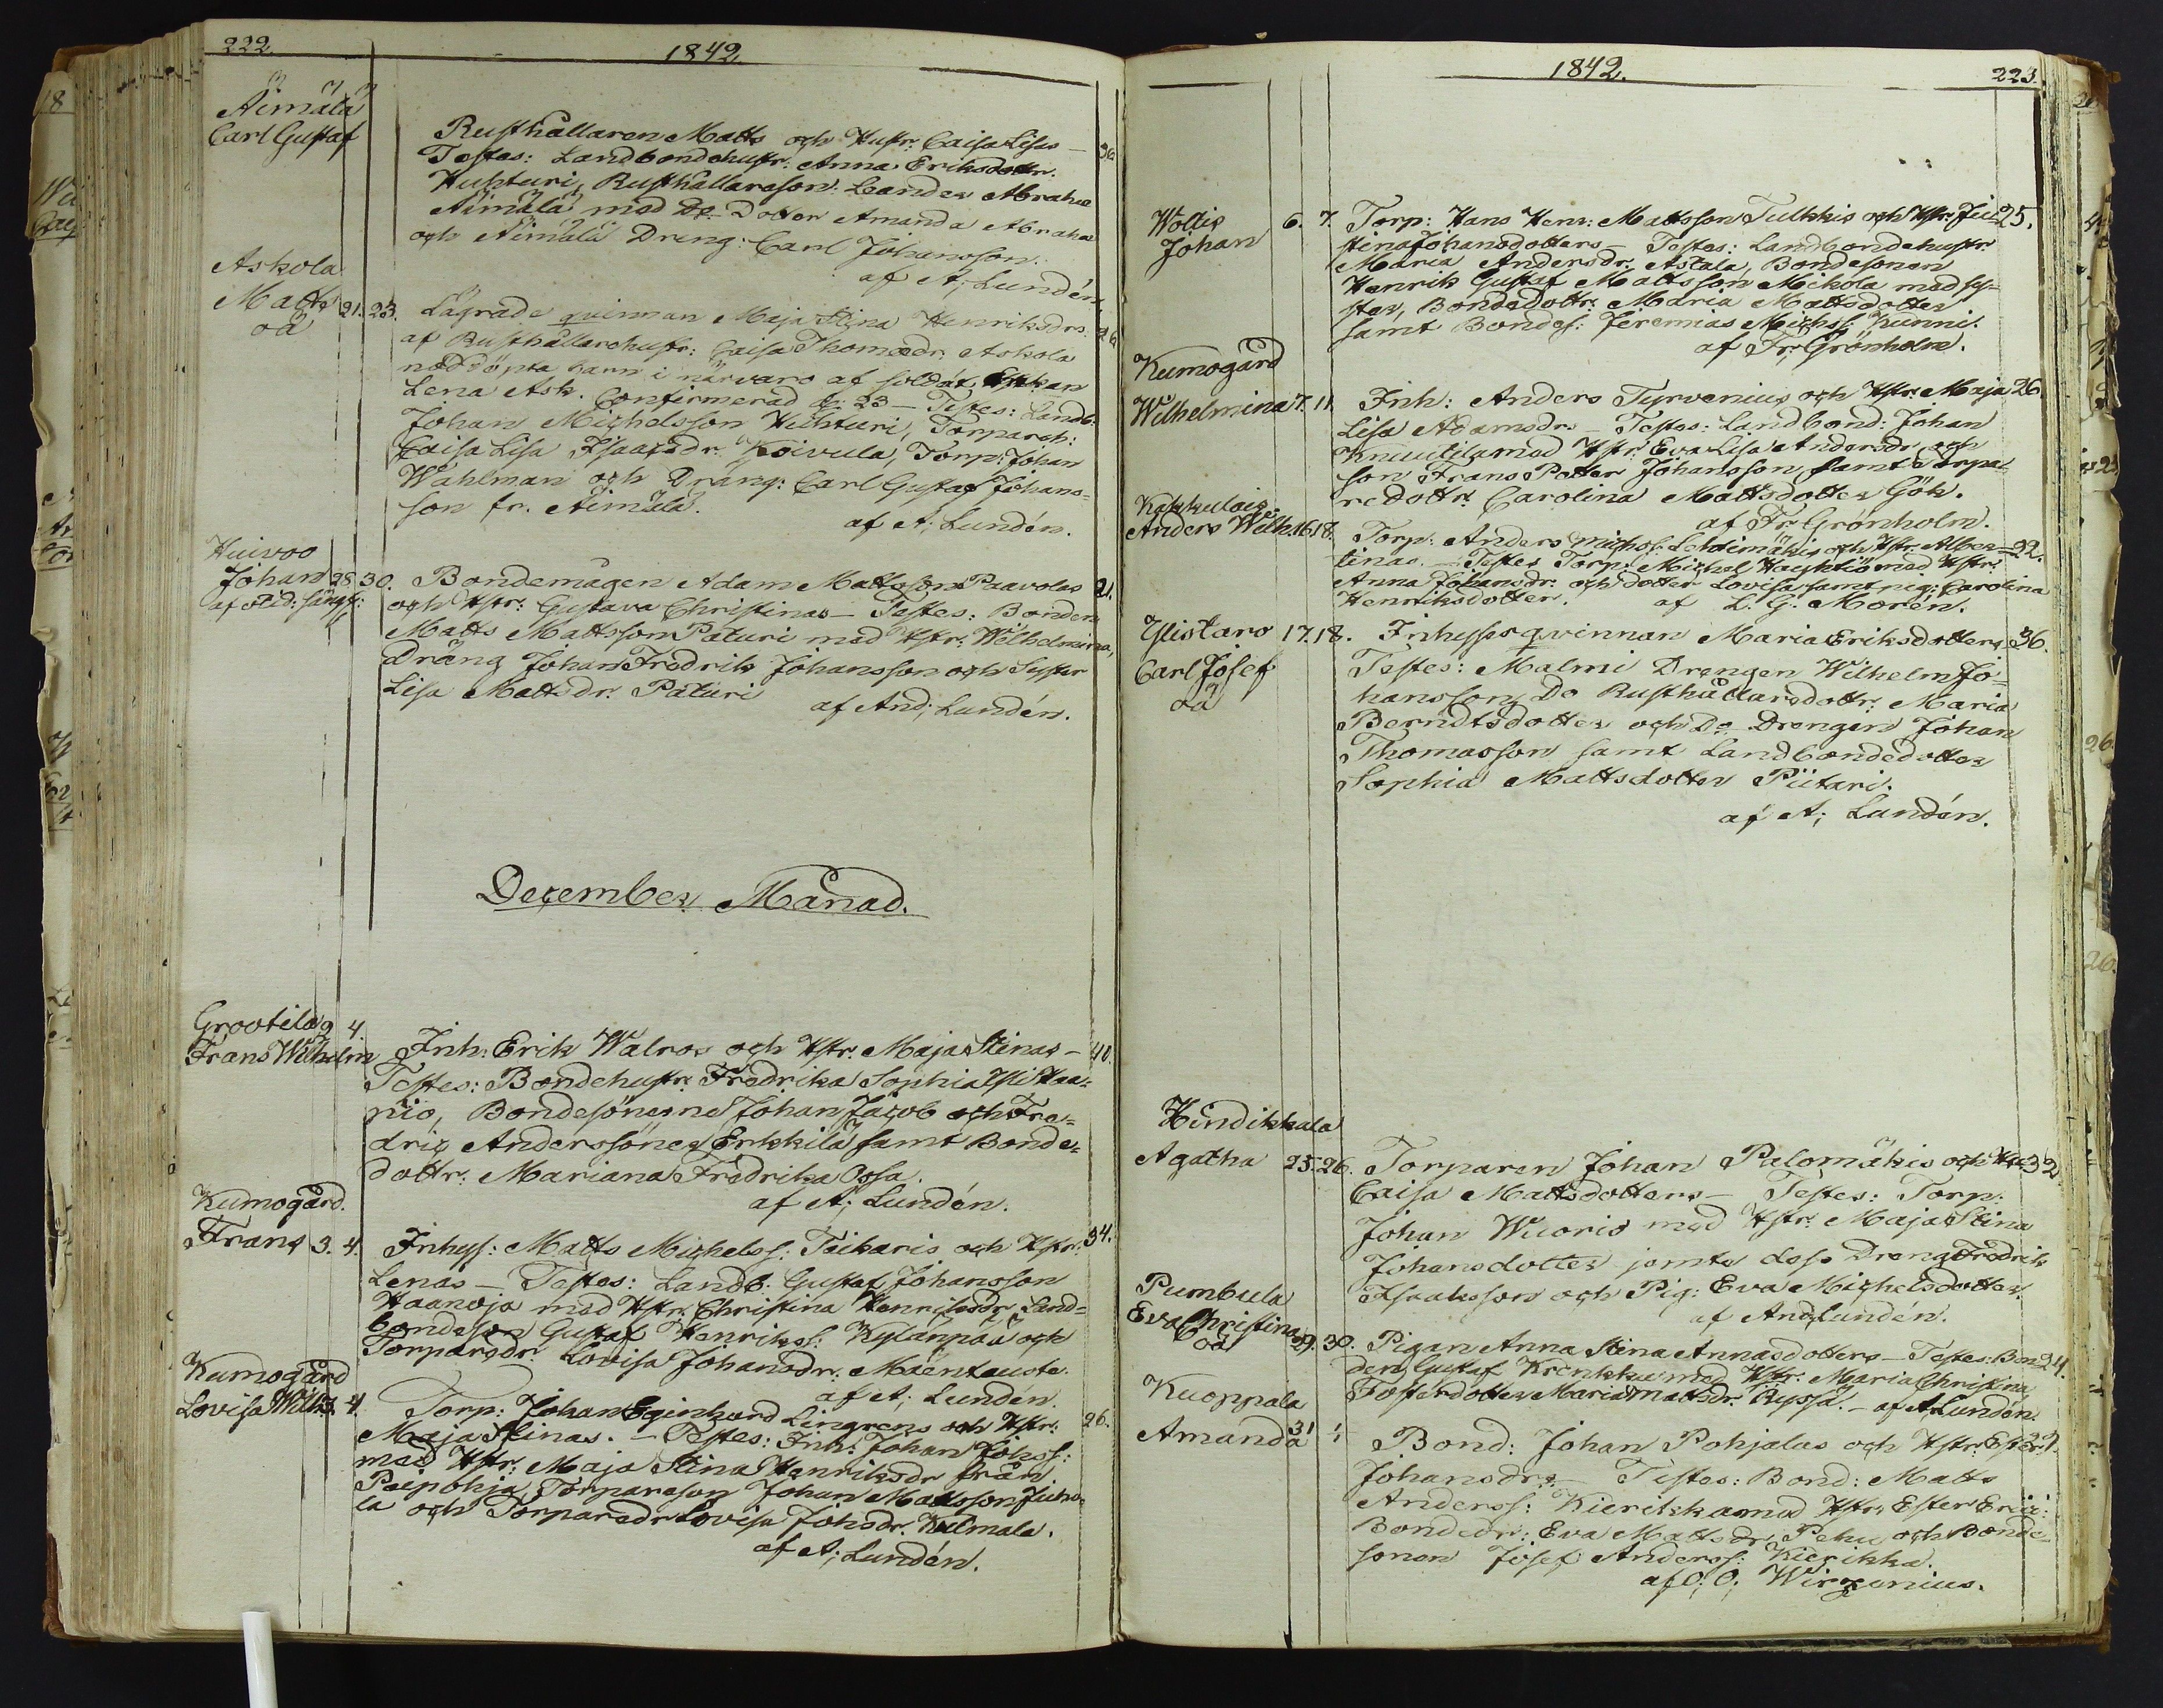 222.
1842.
Äimälä
Carl Gustaf
Rusthållaren Matts och Hustr: Caisa Lisas — 36.
Testes: Landbondehustr: Anna Eriksdottr.
Huhturi, Rusthållareson: Leander Abraha
Äimälä med Do Dotter Amanda Abraha
och Äimälä Dreng: Carl Johansson.
af A; Lundén.
Askola
Matts 21. 23. Lägrade qvinnan Maja Stina Henriksdrs. 26
oä
af Rusthållarehustr: Caisa Thomædr. Askola
nöddöpta barn i närvaro af soldat Enkan
Lena Ask. Confirmerad d: 23 — Testes: Landb:
Johan Michelsson Huhturi, Torpareh:
Caisa Lisa Isaacsdr. Koivula, Torp: Johan
Wahlman och Dräng: Carl Gustaf Johans=
son fr. Äimälä.
af A; Lundén.
Huivoo
Johan 28. 30. Bondemågen Adam Mattsson Paavolas 21.
och Hstr: Gustava Christinas — Testes: Bonden
Matts Mattsson Paturi med Hstr: Wilhelmina,
Dräng Johan Fredrik Johansson och Syster
Lisa Mattsdr. Paturi
af And; Lundén.
December Månad.
Grootila 2 4.
Frans Wilhelm Inh: Erik Walros och Hstr: Maja Stinas — 40.
Testes: Bondehustr: Fredrika Sophia
pio, Bondesönerne Johan Jacob och Fre=
dric Anderssöner Erkkilä samt Bonde=
dottr: Mariana Fredrika Ossa.
af A; Lundén.
Kumogård.
Frans 3. 4. Inhys: Matts Michelss: Teikaris och Hstr: 34.
Lenas — Testes: Landb: Gustaf Johansson
Haanoja med Hstr: Christina Henriksdr, Land=
bondeson Gustaf Henrikss: Kylänpää och
Torparedr. Lovisa Johansdr: Mäentausta.
af A; Lundén.
Kumogård
Lovisa Wilh: 3. 4. Torp: Johan Eginhard Lingrens och Hstr: 26.
Maja Stinas. — Testes: Inh: Johan Johss:
med Hstr: Maja Stina Henriksdr från
Peipohja, Torpareson Johan Mattsson Juho=
la och Torparedr Lovisa Johsdr. Kulmala.
af A; Lundén.
1842.
223.
Wollis 6. 7. Torp: Hans Henr: Mattsson Tulkkis och Hstr: Jiu 25.
Johan
stina Johansdotters — Testes: Landbondehustr:
Maria Andersdr. Astala, Bondesonen
Henrik Gustaf Mattsson Mikola med sys=
ster, Bondedottr: Maria Mattsdotter
samt Bondes: Jeremias Michs: Kunni.
af Fr; Grönholm.
Kumogård
Wilhelmina 7. 11. Inh: Anders Tyrvenius och Hstr: Maja 26.
Lisa Adamsdrs. — Testes: Landbond: Johan
Knuutila med Hstr: Eva Lisa Andersdr och
son Frans Petter Johansson samt Torpa=
redottr: Carolina Mattsdotter Gök.
af Fr; Grönholm.
Kakkulais:
Anders Wilh: 16. 18. Torp: Anders Michss: Lehtimäkis och Hstr. Alber= 22.
tinas. — Testes Torp: Michel Hauhtiö med Hstr:
Anna Johansdr. och dotter Lovisa samt pig: Carolina
Henriksdotter.
af L. G: Morén.
Ylistaro 17. 18. Inhysesqvinnan Maria Eriksdotters 36.
Carl Josef
oä
Testes: Malmi Drengen Wilhelm Jo=
hansson, Do Rusthållaredottr: Maria
Berndtsdotter och Do Drengen Johan
Thomasson samt Landbondedotter
Sophia Mattsdotter Piitari.
af A; Lundén.
Hindikkala
Agatha 25. 26. Torparen Johan Palomäkis och Hu 32.
Caisa Mattsdotters — Testes: Torp:
Johan Wuoris med Hstr: Maja Stina
Johansdotter jämte dess Dreng Fredrik
Isaaksson och Pig: Eva Michelsdotter.
af And; Lundén.
Pumbula
Eva Christina 29. 30. Pigan Anna Stina Annasdotters — Testes: Bon= 24.
oä
den Gustaf Krenkku med Hstr: Maria Christina
Fosterdotter Maria Mattsdr. Ryssä. — af A Lundén.
Kuoppala
Amanda 31 Bond: Johan Pohjalas och Hstr: Ester 27.
Johansdrs. — Testes: Bond: Matts
Anderss: Kierikka med Hstr: Ester Eric:
Bondedr: Eva Mattsdr. Pehu och Bonde=
sonen Josef Anderss: Kierikka.
af O; O; Wirzenius.